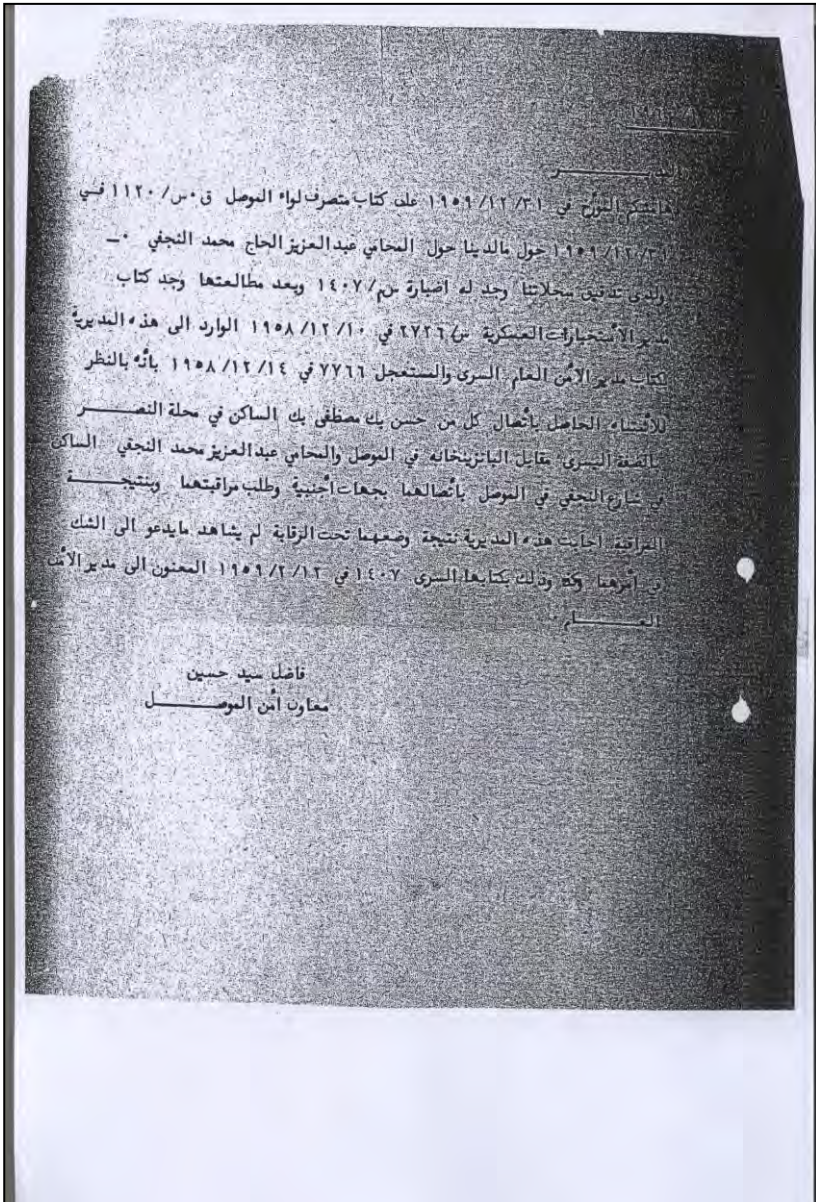 المديـــــــر
هامشكم المؤرخ في ٣١/ ١٢/ ١٩٥٩ على كتاب متصرف لواء الموصل ق٠س/ ١١٢٠ فـي
١٩٥٩/١٢/٣١ حول مالدينا حول المحامي عبد العزيز الحاج محمد النجفي ٠ـ
ولدى تدقيق سجلاتنا وجد له اضبارة س م/ ١٤٠٧ وبعد مطالعتها وجد كتاب
مدير الأستخبارات العسكرية س/ ٢٧٢٦ في ١٠/ ١٢/ ١٩٥٨ الوارد الى هذه المديرية
بكتاب مدير الأمن العام السرى والمستعجل ٧٧٦٦ في ١٤/ ١٢/ ١٩٥٨ بأنه بالنظر
للأشتباه الحاصل بأتصال كل من حسن بك مصطفى بك الساكن في محلة النصـــــر
بالضفة اليسرى مقابل البانزينخانه في الموصل والمحامي عبد العزيز محمد النجفي الساكن
في شارع النجفي في الموصل بأتصالهما بجهات أجنبية وطلب مراقبتهما وبنتيجـــــة
المراقبة اجابت هذه المديرية نتيجة وضعهما تحت الرقابة لم يشاهد مايدعو الى الشك
في أمرهما وذلك بكتابها السرى ١٤٠٧ في ١٢/ ٢/ ١٩٥٩ المعنون الى مدير الأمن
العـــــــام ٠
فاضل سيد حسين
معاون أمن الموصـــــــل